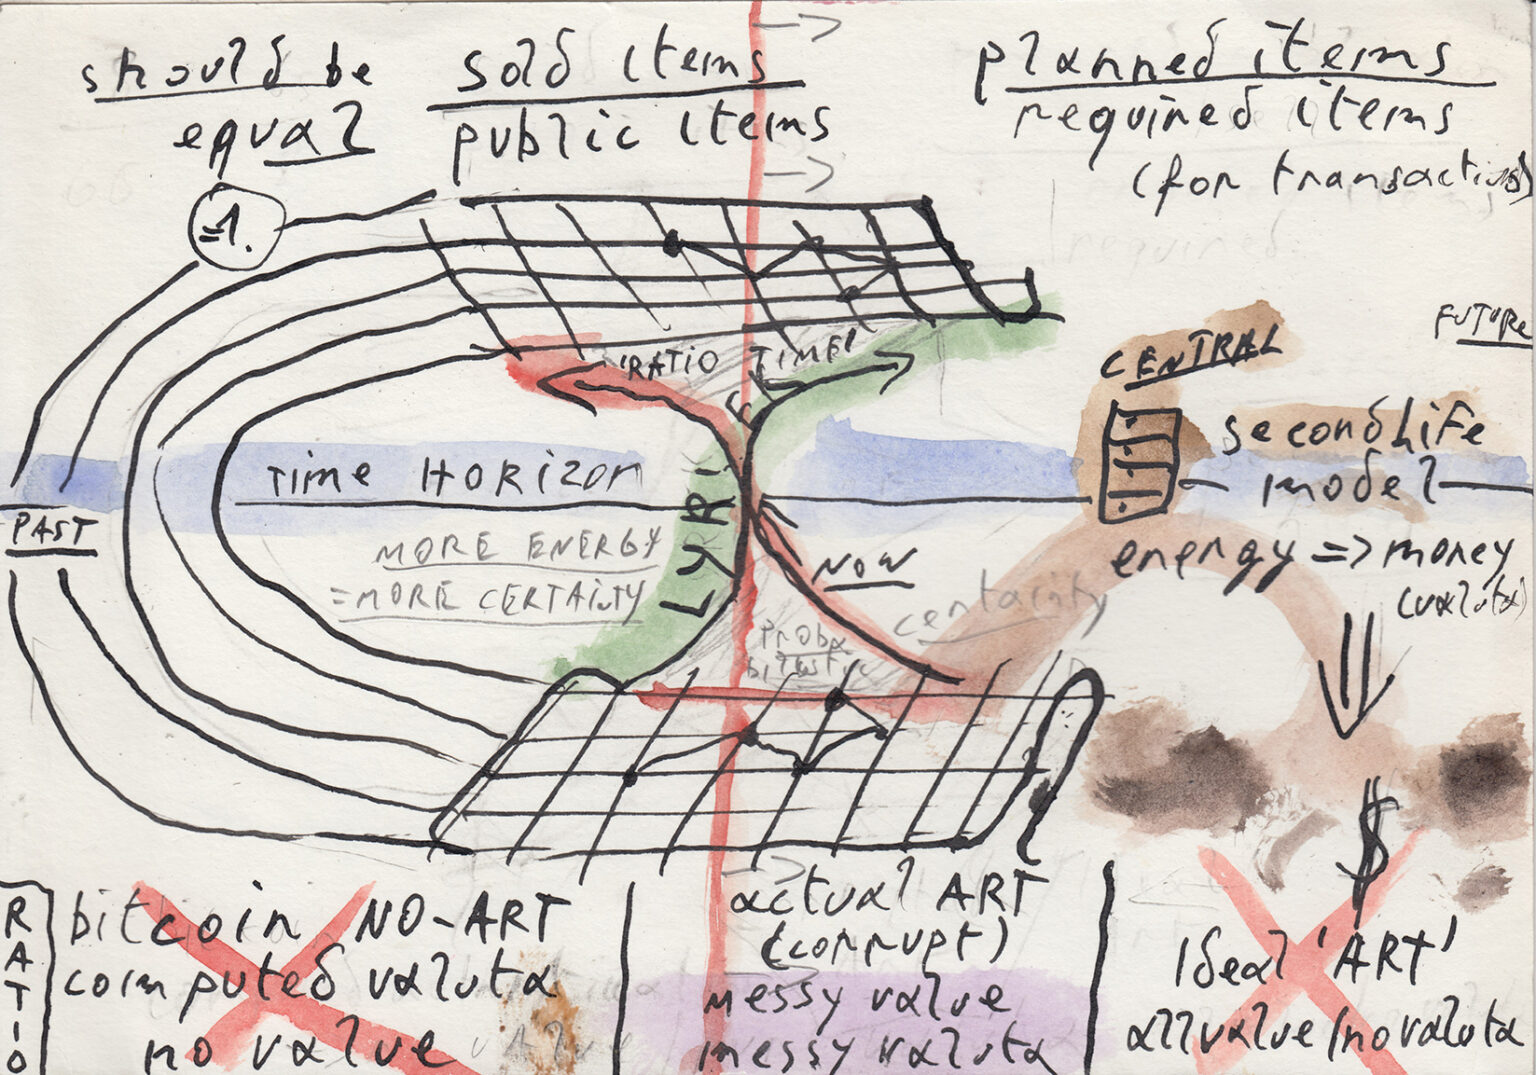 should be
equal
sold items
public items
planned items
required items
(for transactions)
=1.
'RATIO TIME'
CENTRAL
FUTURE
secondLife
model
TIME HORIZON
PAST
LYRI
MORE ENERGY
=MORE CERTAINTY
NOW
certainty
energy => money
(valuta)
$
RATIO
bitcoin NO-ART
computed valuta
no value
actual ART
(corrupt)
messy value
messy valuta
Ideal 'ART'
allvalue/novaluta